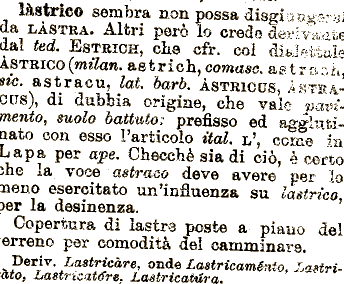 làstrico sembra non possa disgiungersi
da LÀSTRA. Altri però lo crede derivante
dal ted. ESTRICH, che cfr. col dialettale
ÀSTRICO (milan. astrich, comasc. astrach,
sic. astracu, lat. barb. ÀSTRICUS, ÀSTRA-
CUS), di dubbia origine, che vale pavi-
mento, suolo battuto: prefisso ed aggluti-
nato con esso l'articolo ital. L', come in
Lapa per ape. Checchè sia di ciò, è certo
che la voce astraco deve avere per lo
meno esercitato un'influenza su lastrico,
per la desinenza.
Copertura di lastre poste a piano del
terreno per comodità del camminare.
Deriv. Lastricàre, onde Lastricaménto, Lastri-
càto, Lastricatóre, Lastricatúra.